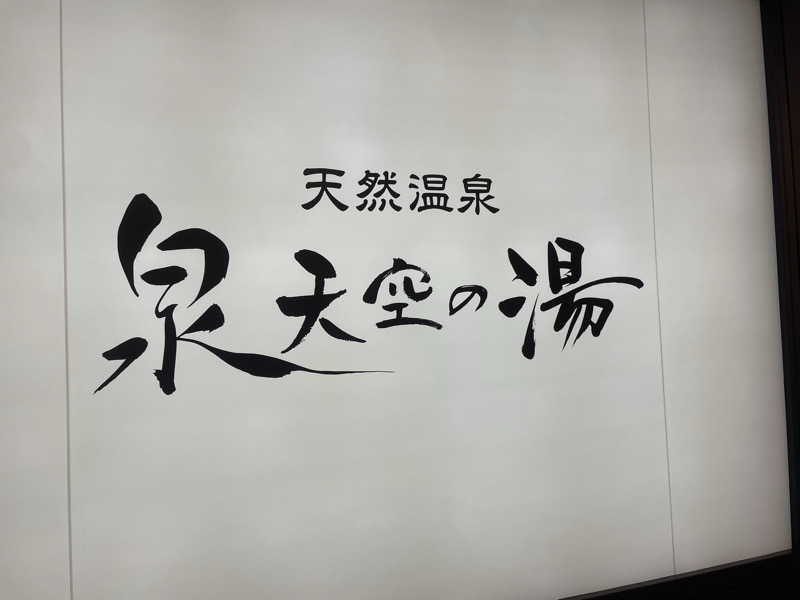 天然温泉
泉天空の湯